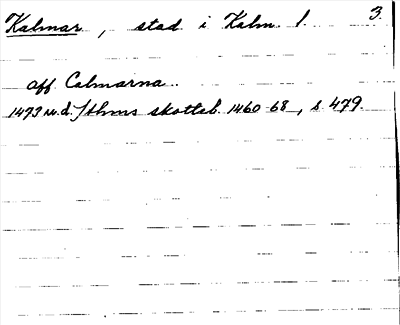 Kalmar, stad i Kalm. l. 3.
aff Calmarna..
1473 u.d. /Sthms skotteb. 1460-68, s 479.